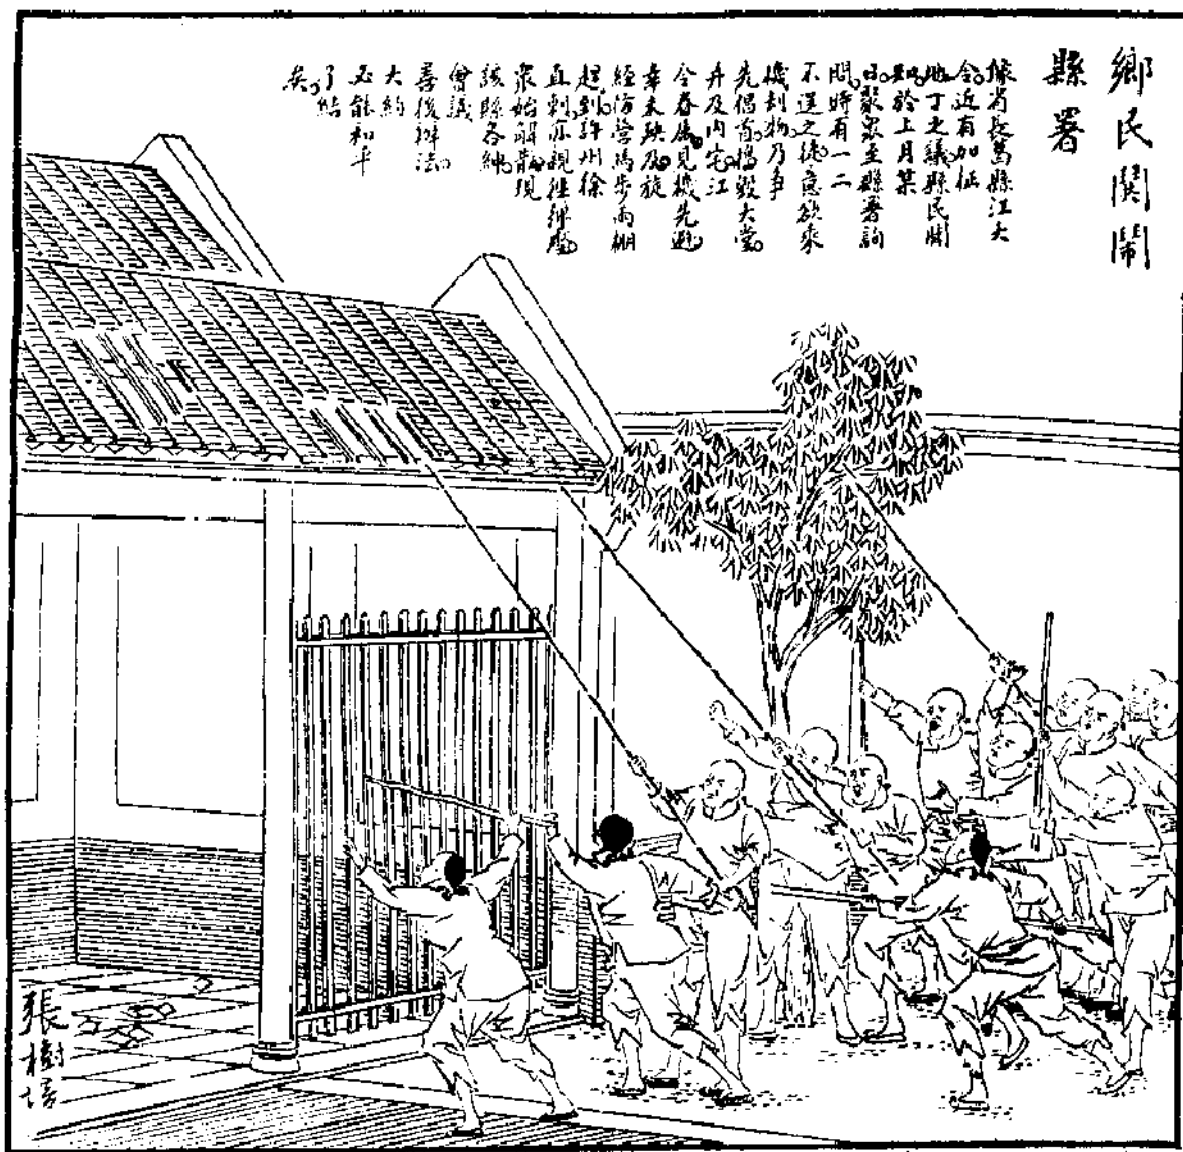 鄉民鬨鬧
縣署
據省長葛縣江大
令近有加征
地丁之議縣民聞
知於上月某
日聚眾至縣署詢
問時有一二
不逞之徒意欲乘
機刦物乃爭
先倡首搗毀大堂
并及內宅江
令眷屬見機先避
幸未殃及旋
經防營馬步兩棚
趕到許州徐
直刺亦親往彈壓
眾始解散現
該縣各紳
會議
善後辦法
大約
必能和平
了結
矣
張樹